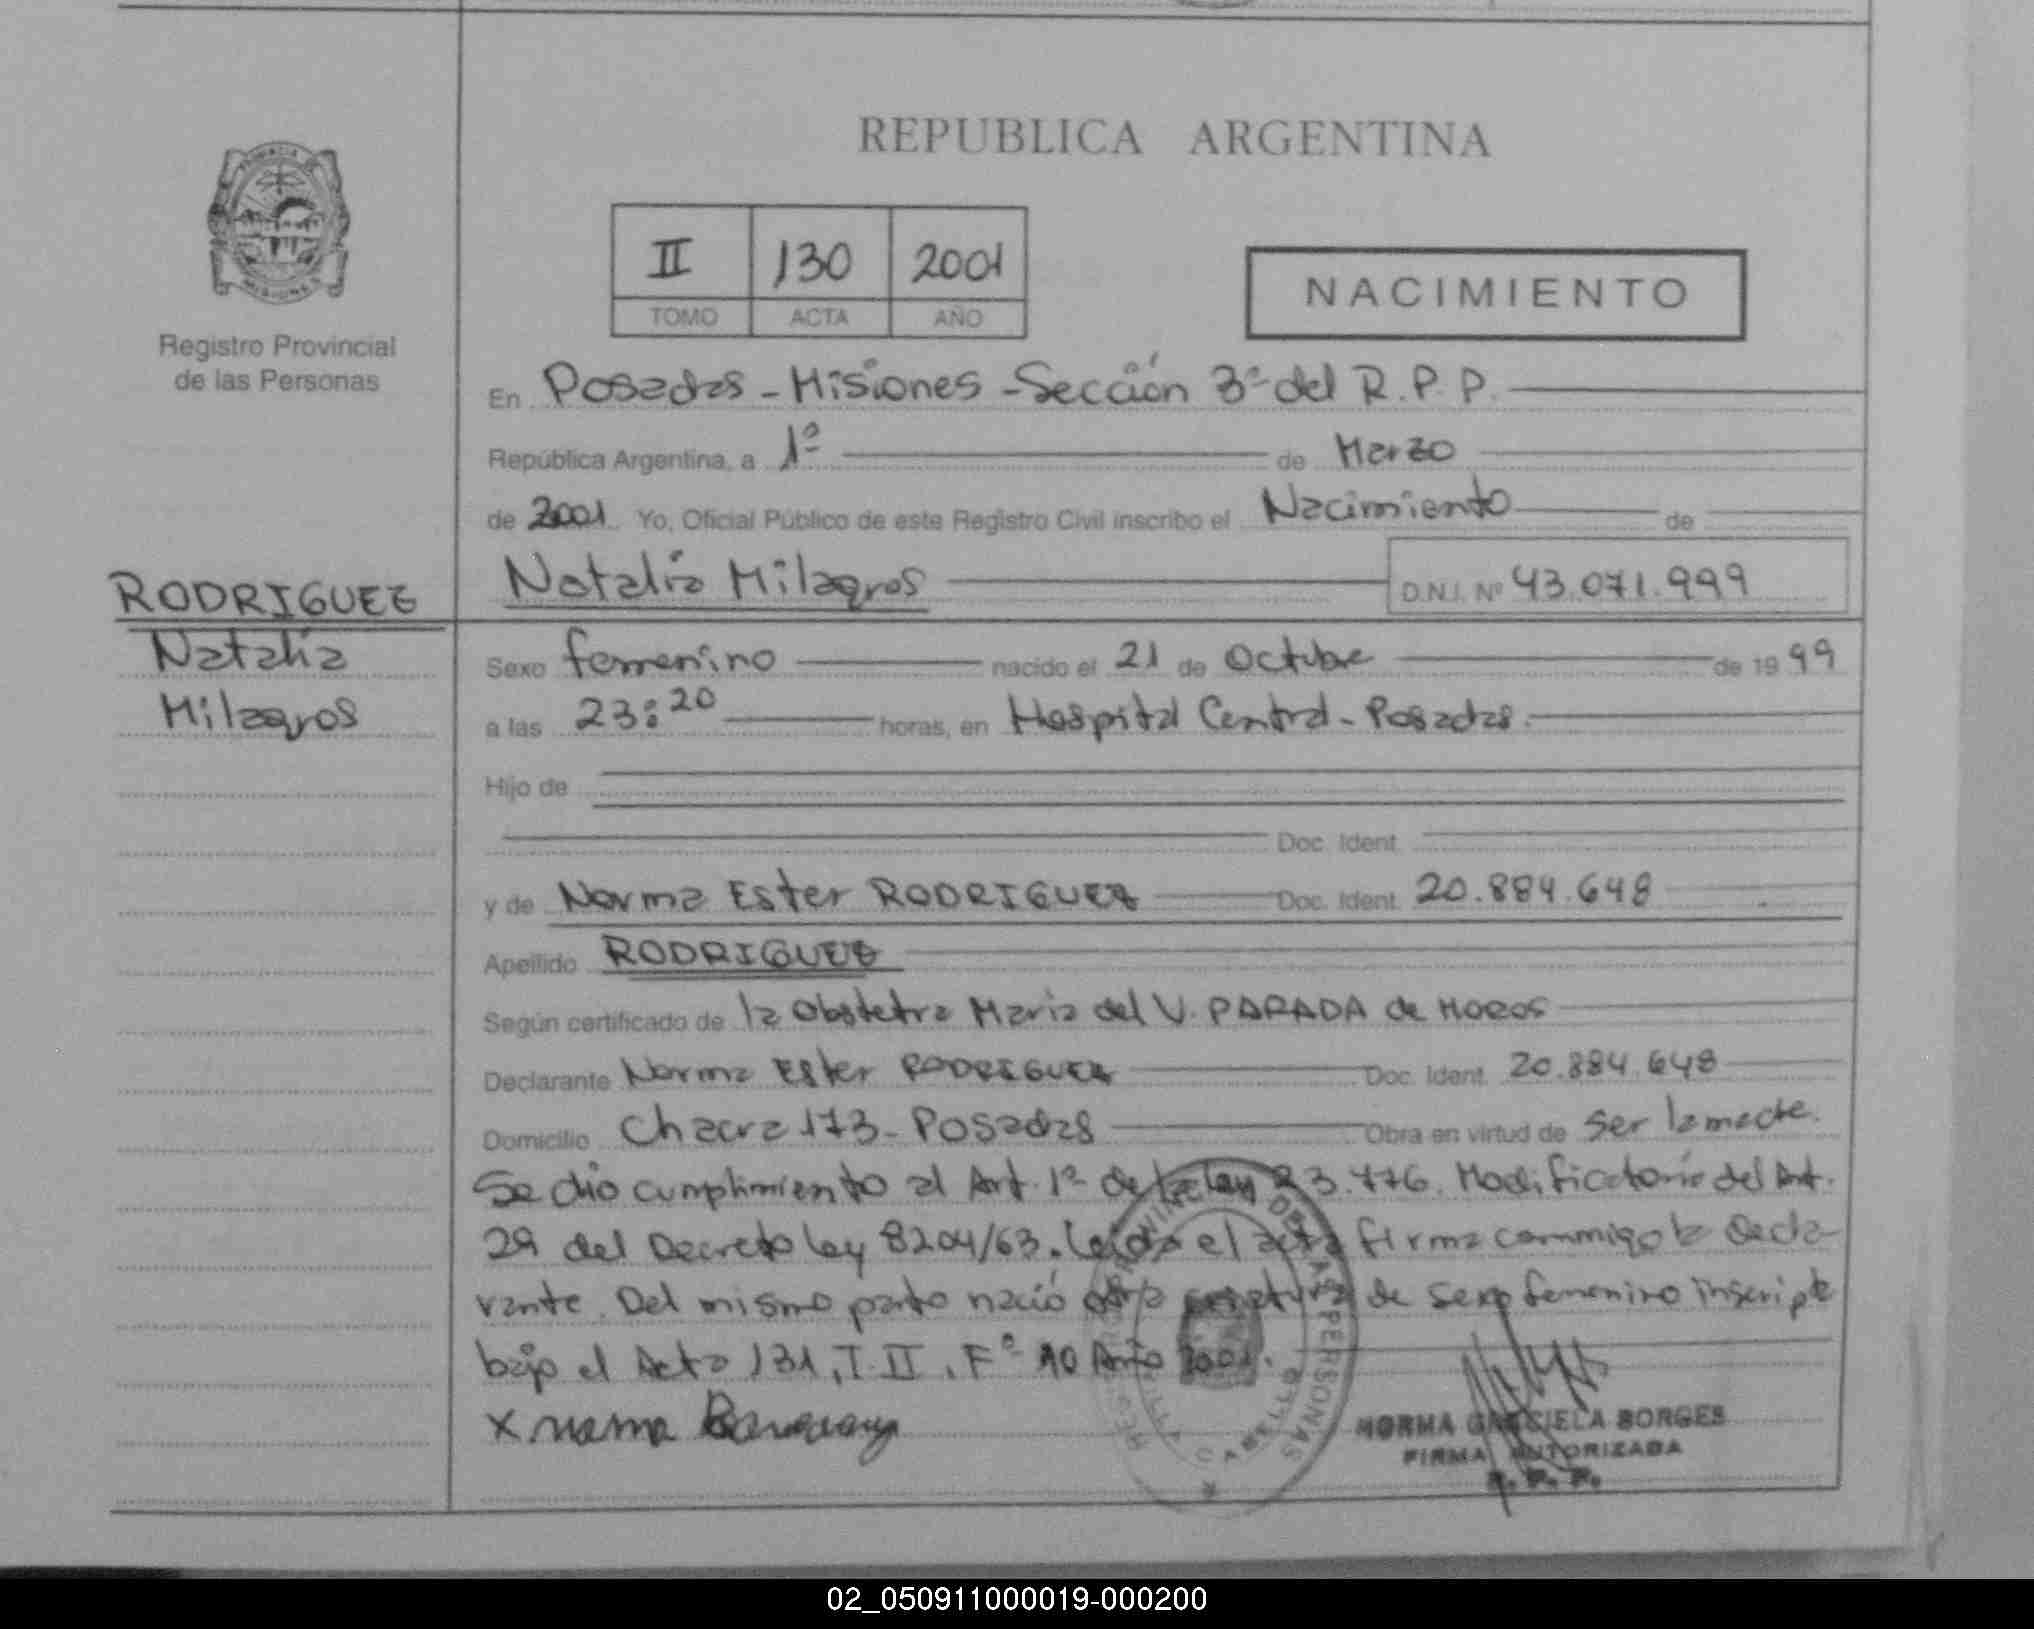 REPUBLICA ARGENTINA
II 130 2001
TOMO ACTA AÑO
NACIMIENTO
Registro Provincial
de las Personas
En Posadas - Misiones - Sección 3ª del R.P.P.
República Argentina, a 1º de Marzo
de 2001 Yo, Oficial Público de este Registro Civil inscribo el Nacimiento de
RODRIGUEZ
Natalia
Milagros
Natalia Milagros D.N.I. Nº 43.071.999
Sexo femenino nacido el 21 de Octubre de 1999
a las 23:20 horas, en Hospital Central - Posadas.
Hijo de
Doc. Ident.
y de Norma Ester RODRIGUEZ Doc. Ident. 20.884.648
Apellido RODRIGUEZ
Según certificado de la Obstetra Maria del V. PARADA de
Declarante Norma Ester RODRIGUEZ Doc. Ident. 20.884.648
Domicilio Chacra 173 - Posadas Obra en virtud de ser la madre.
Se dio cumplimiento al Art. 1º de la ley 23.776. Modificatorio del Art.
29 del Decreto ley 8204/63. Leida el acta firma conmigo la decla-
rante. Del mismo parto nació otra criatura de sexo femenino inscripta
bajo el Acta 131, T. II, Fº 10 Año 2001.
X
NORMA GRACIELA BORGES
FIRMA AUTORIZADA
R. P. P.
02_050911000019-000200